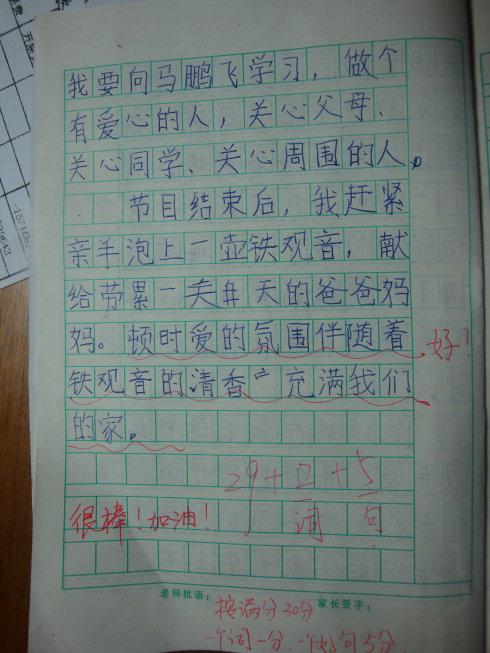 我要向马鹏飞学习，做个
有爱心的人，关心父母、
关心同学、关心周围的人。
节目结束后，我赶紧
亲羊泡上一壶铁观音，献
给劳累一天的爸爸妈
妈。顿时爱的氛围伴随着
好！
铁观音的清香充满我们
的家。
29+2+5
很棒！加油！
词 句
老师批语： 家长签字：
按满分30分
一个词一分，一个好句5分